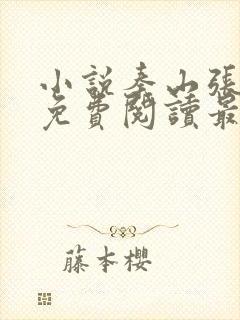 小説奉山張
免費閱讀最
藤本櫻